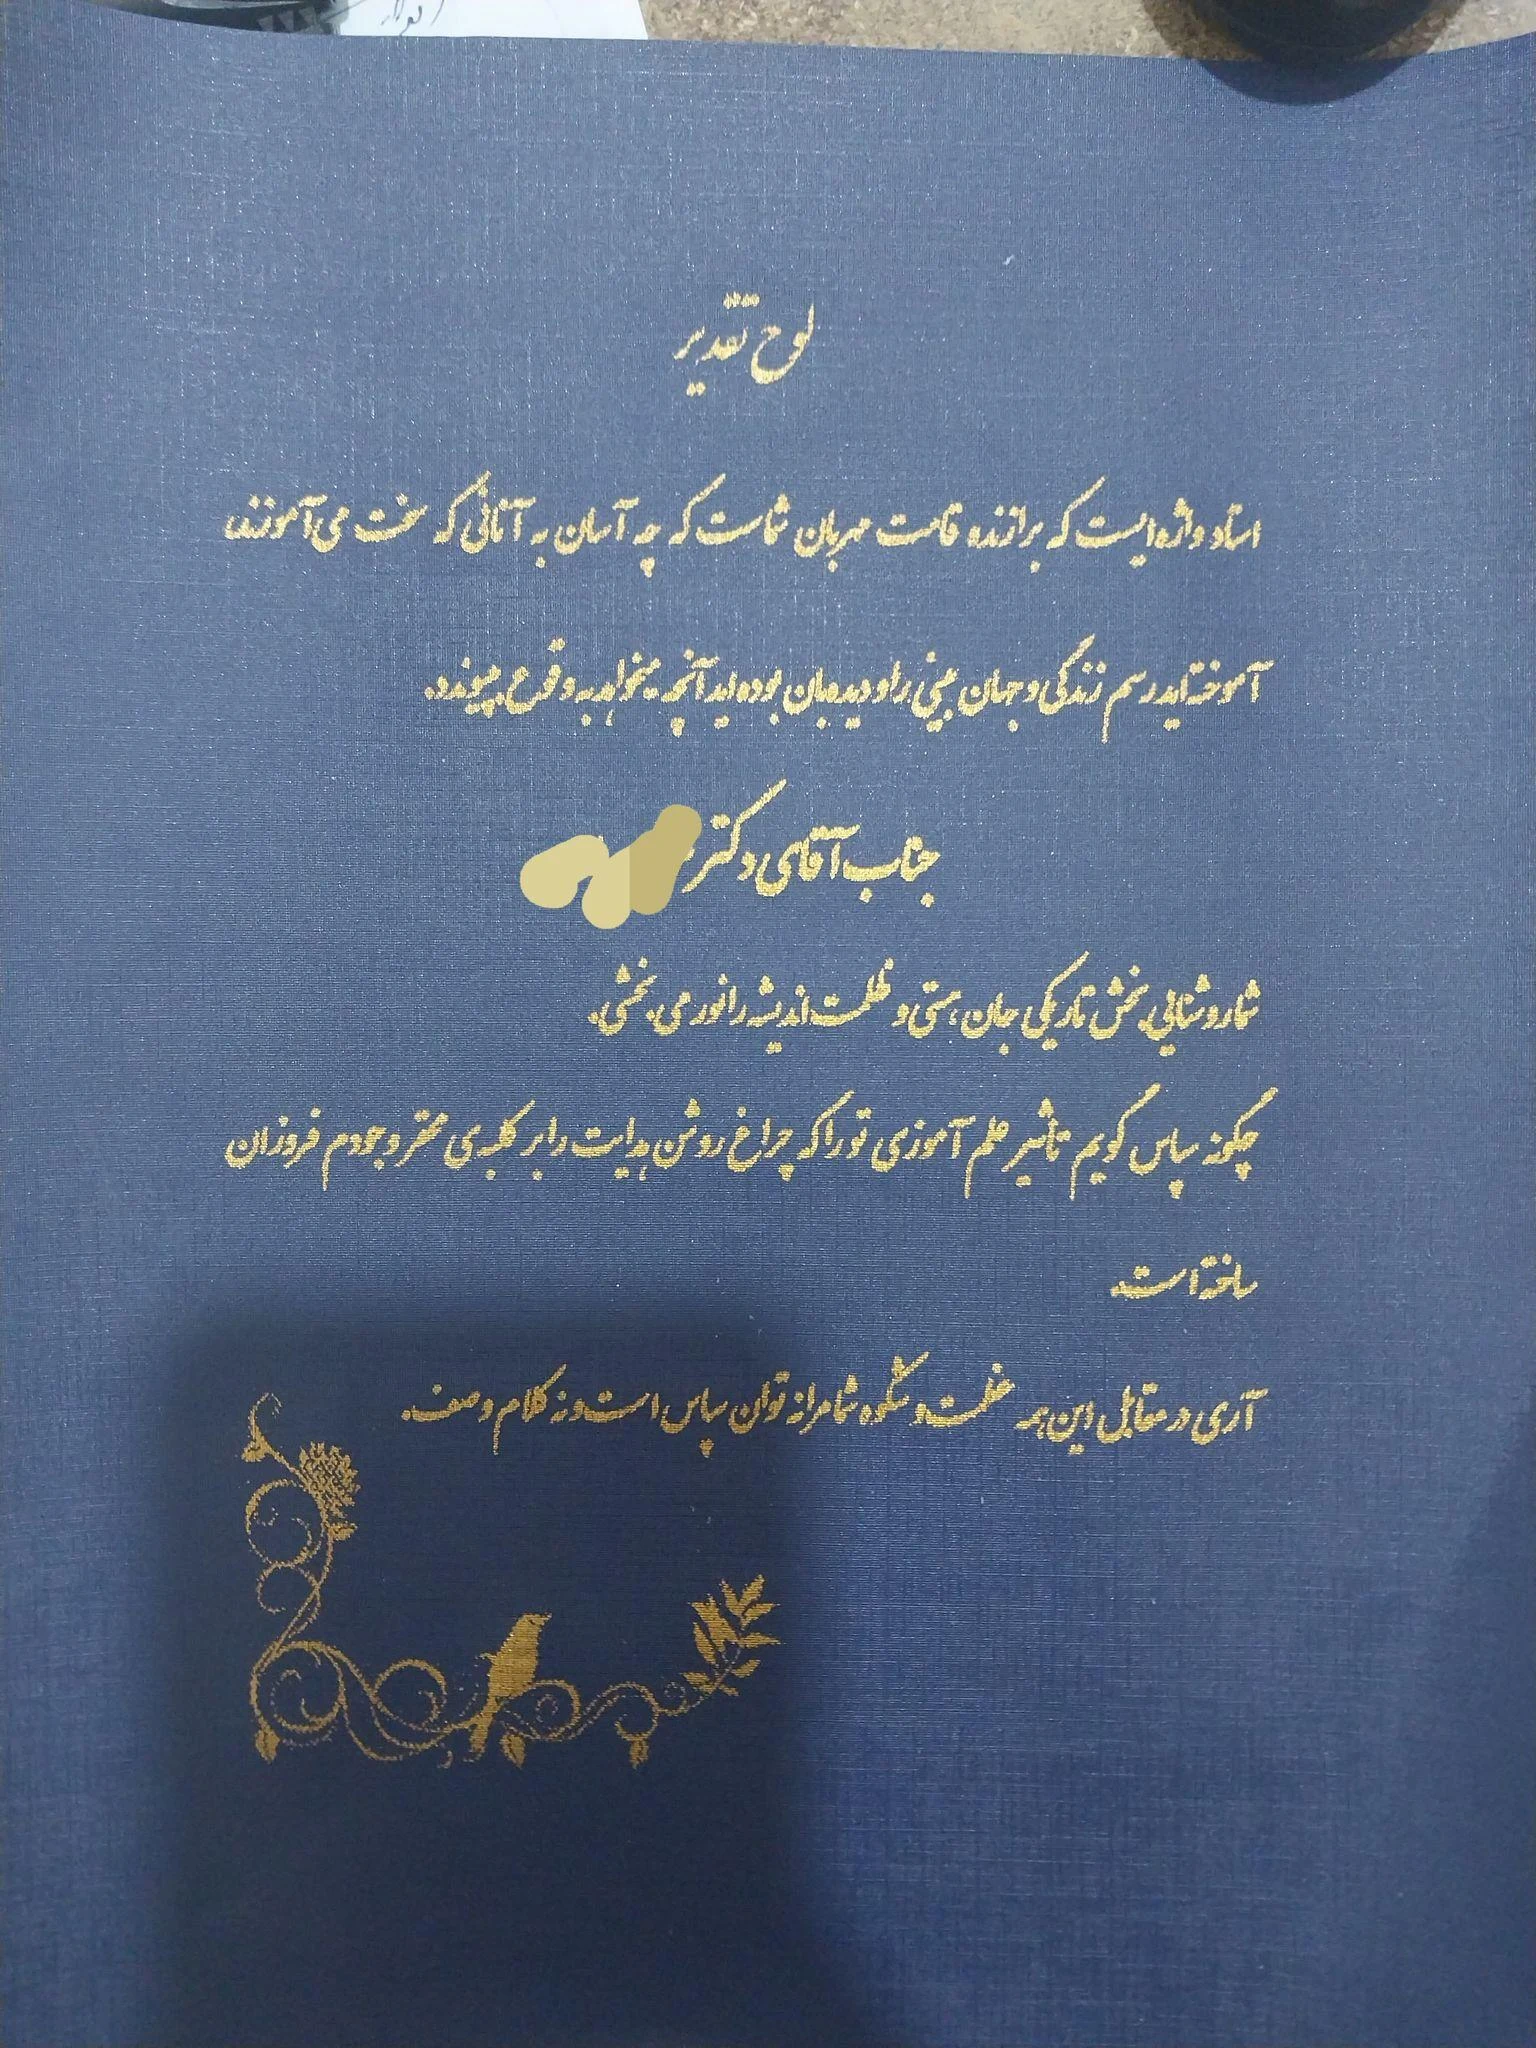 لوح تقدیر
استاد واژه ایست که برازنده قامت مهربان شماست که چه آسان به آنانی که سخت می آموزند،
آموخته اید رسم زندگی و جهان بینی را و دیده بان بوده اید آنچه میخواهد به وقوع بپیوندد.
جناب آقای دکتر
شما روشنایی بخش تاریکی جان هستی و ظلمت اندیشه را نور می بخشی.
چگونه سپاس گویم تأثیر علم آموزی تو را که چراغ روشن هدایت را بر کلبه ی محقر وجودم فروزان
ساخته است.
آری در مقابل این همه عظمت و شکوه شما مرا نه توان سپاس است و نه کلام وصف.